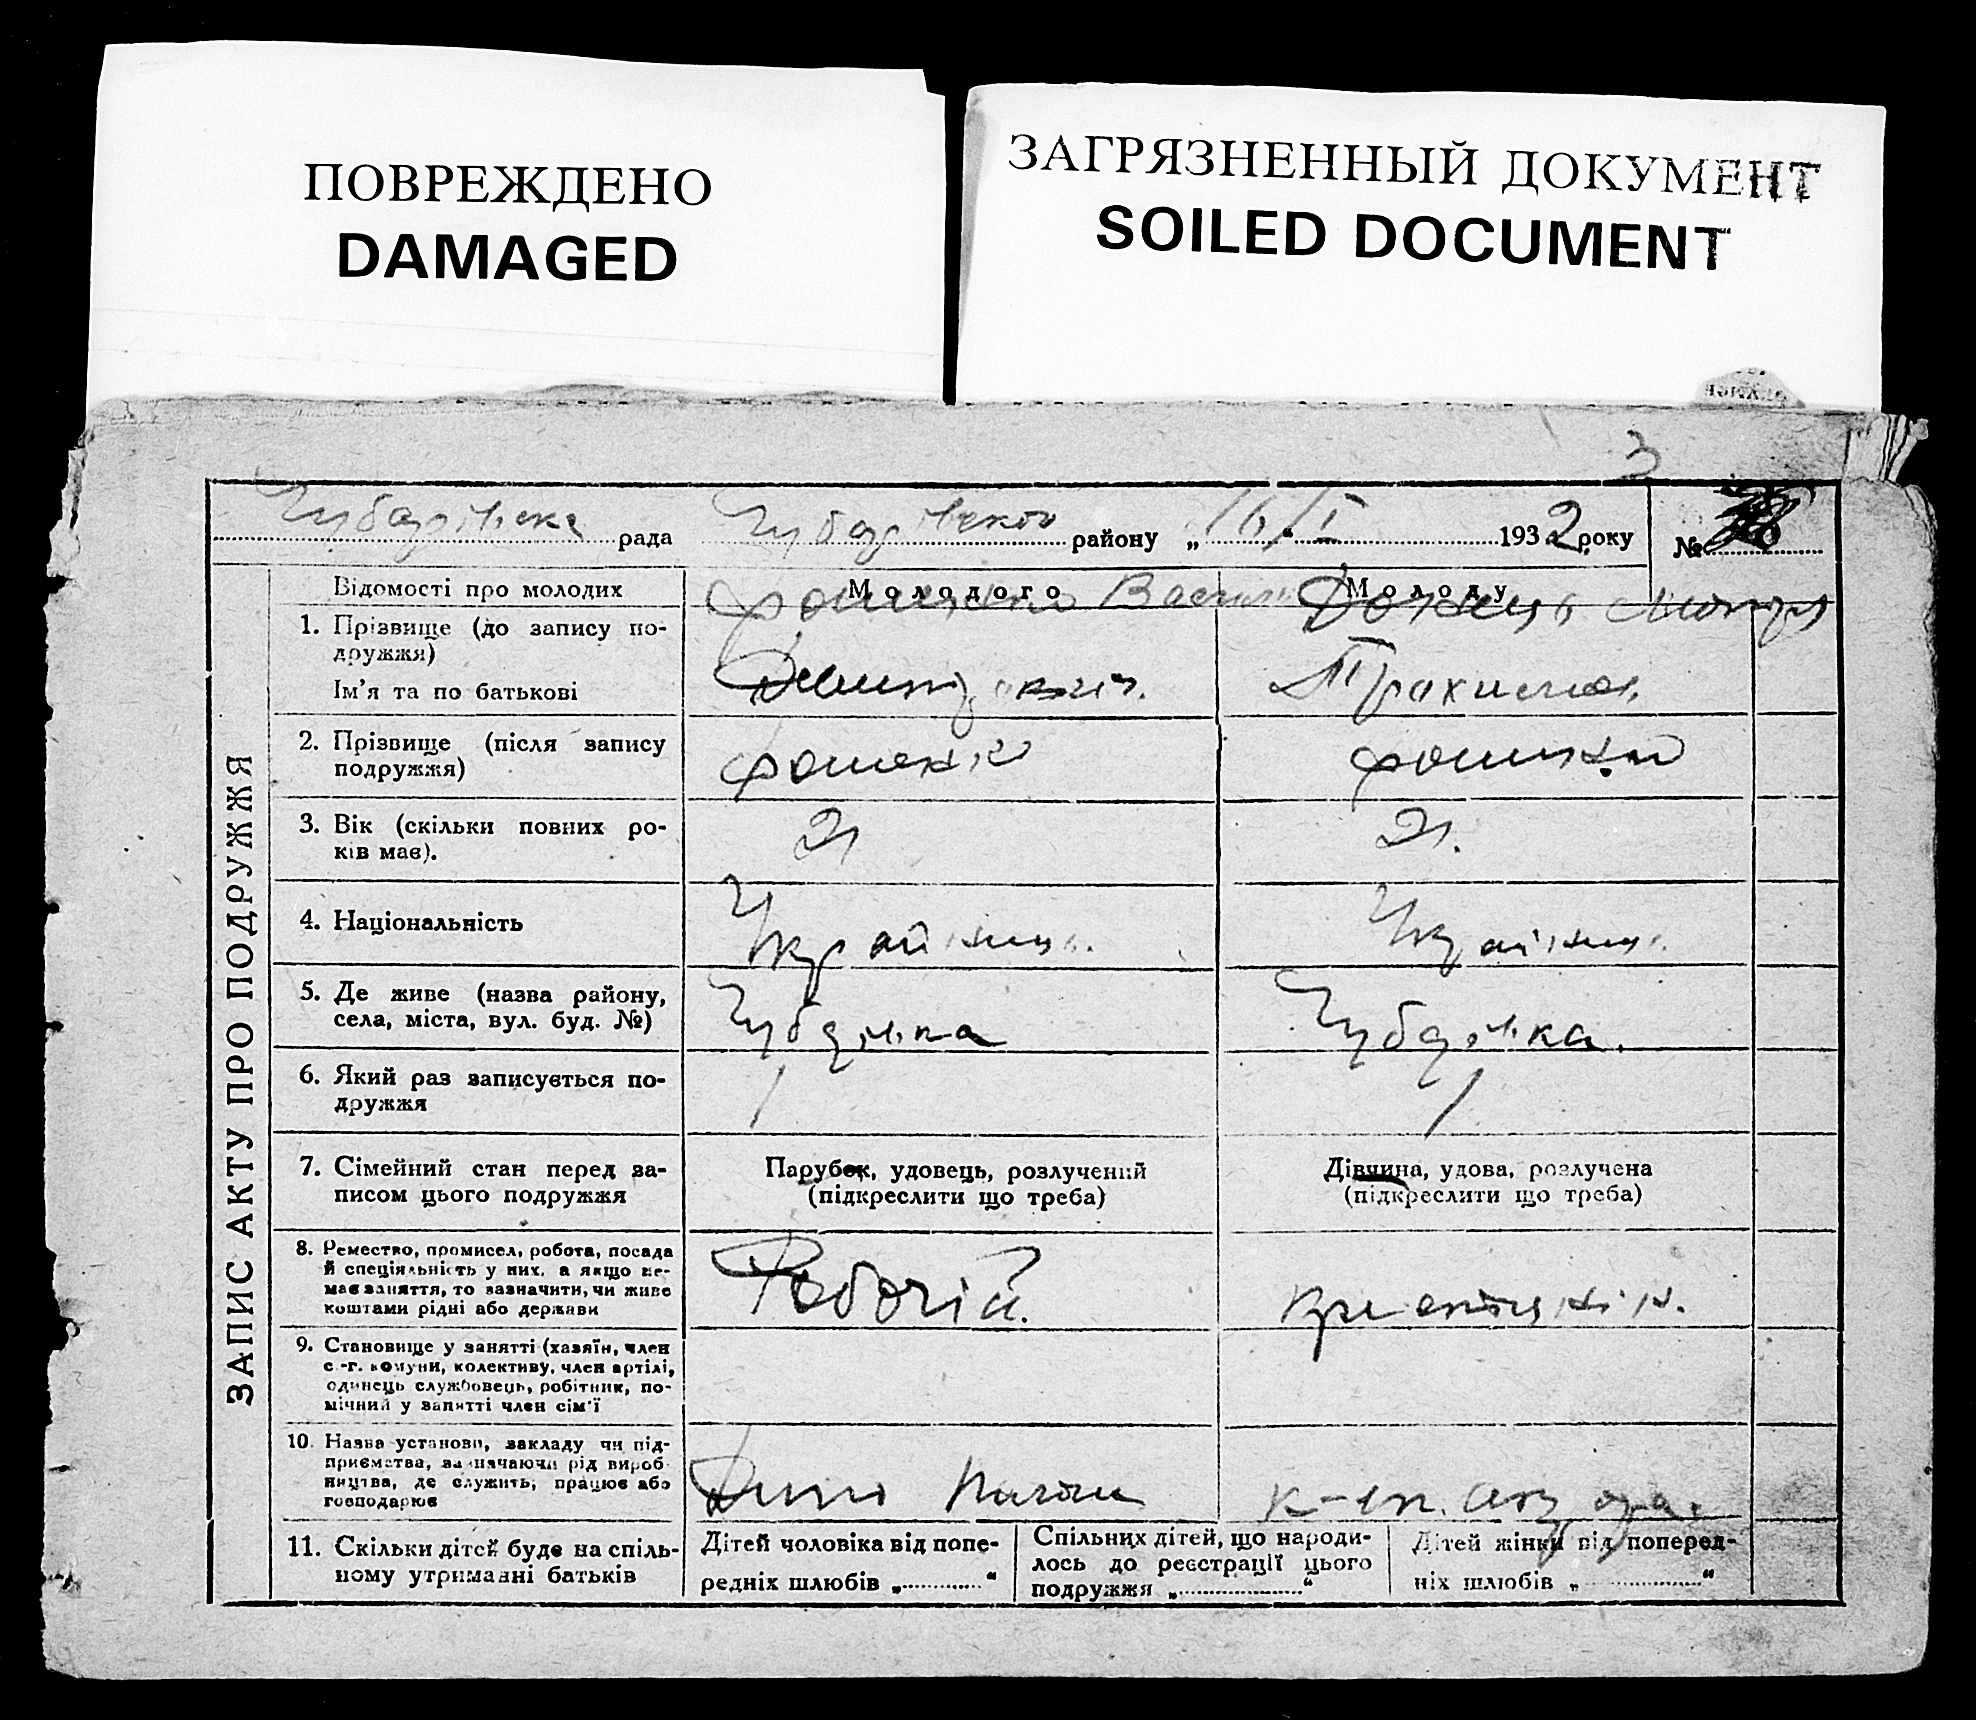 ПОВРЕЖДЕНО
DAMAGED
ЗАГРЯЗНЕННЫЙ ДОКУМЕНТ
SOILED DOCUMENT
3
Чубарівська рада Чубарівського району „16/I“ 1932 року №
ЗАПИС АКТУ ПРО ПОДРУЖЖЯ
Відомості про молодих
Молодого
Молоду
1. Прізвище (до запису по-
дружжя)
Ім'я та по батькові
Трохимов.
2. Прізвище (після запису
подружжя)
3. Вік (скільки повних ро-
ків має).
21
21.
4. Національність
Українець.
Українець.
5. Де живе (назва району,
села, міста, вул. буд. №)
Чубарівка
Чубарівка.
6. Який раз записується по-
дружжя
1
1
7. Сімейний стан перед за-
писом цього подружжя
Парубок, удовець, розлучений
(підкреслити що треба)
Дівчина, удова, розлучена
(підкреслити що треба)
8. Ремество, промисел, робота, посада
й спеціяльність у них, а якщо не-
має заняття, то зазначити, чи живе
коштами рідні або держави
Робочій.
9. Становище у занятті (хазяїн, член
с.-г. комуни, колективу, член артілі,
одинець службовець, робітник, по-
мічний у занятті член сім'ї
10. Назва установи, закладу чи під-
приємства, зазначаючи рід вироб-
ництва, де служить, працює або
господарює
11. Скільки дітей буде на спіль-
ному утриманні батьків
Дітей чоловіка від попе-
редніх шлюбів „............“
Спільних дітей, що народи-
лось до реєстрації цього
подружжя „..................“
Дітей жінки від поперед-
ніх шлюбів „..................“